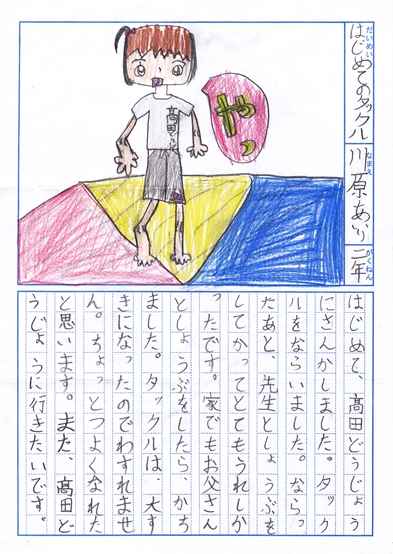 だいめい
はじめてのタックル
なまえ
川原あいり
がくねん
二年
やっ
高田
はじめて、高田どうじょう
にさんかしました。タック
ルをならいました。ならっ
たあと、先生としょうぶを
してかってとてもうれしか
ったです。家でもお父さん
としょうぶをしたら、かち
ました。タックルは、大す
きになったのでわすれませ
ん。ちょっとつよくなれた
と思います。また、高田ど
うじょうに行きたいです。